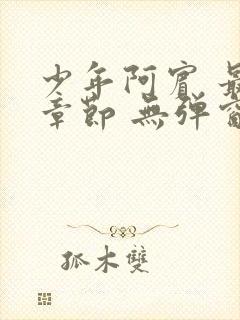 少年阿賓 最
章節 無弹窗
孤木雙